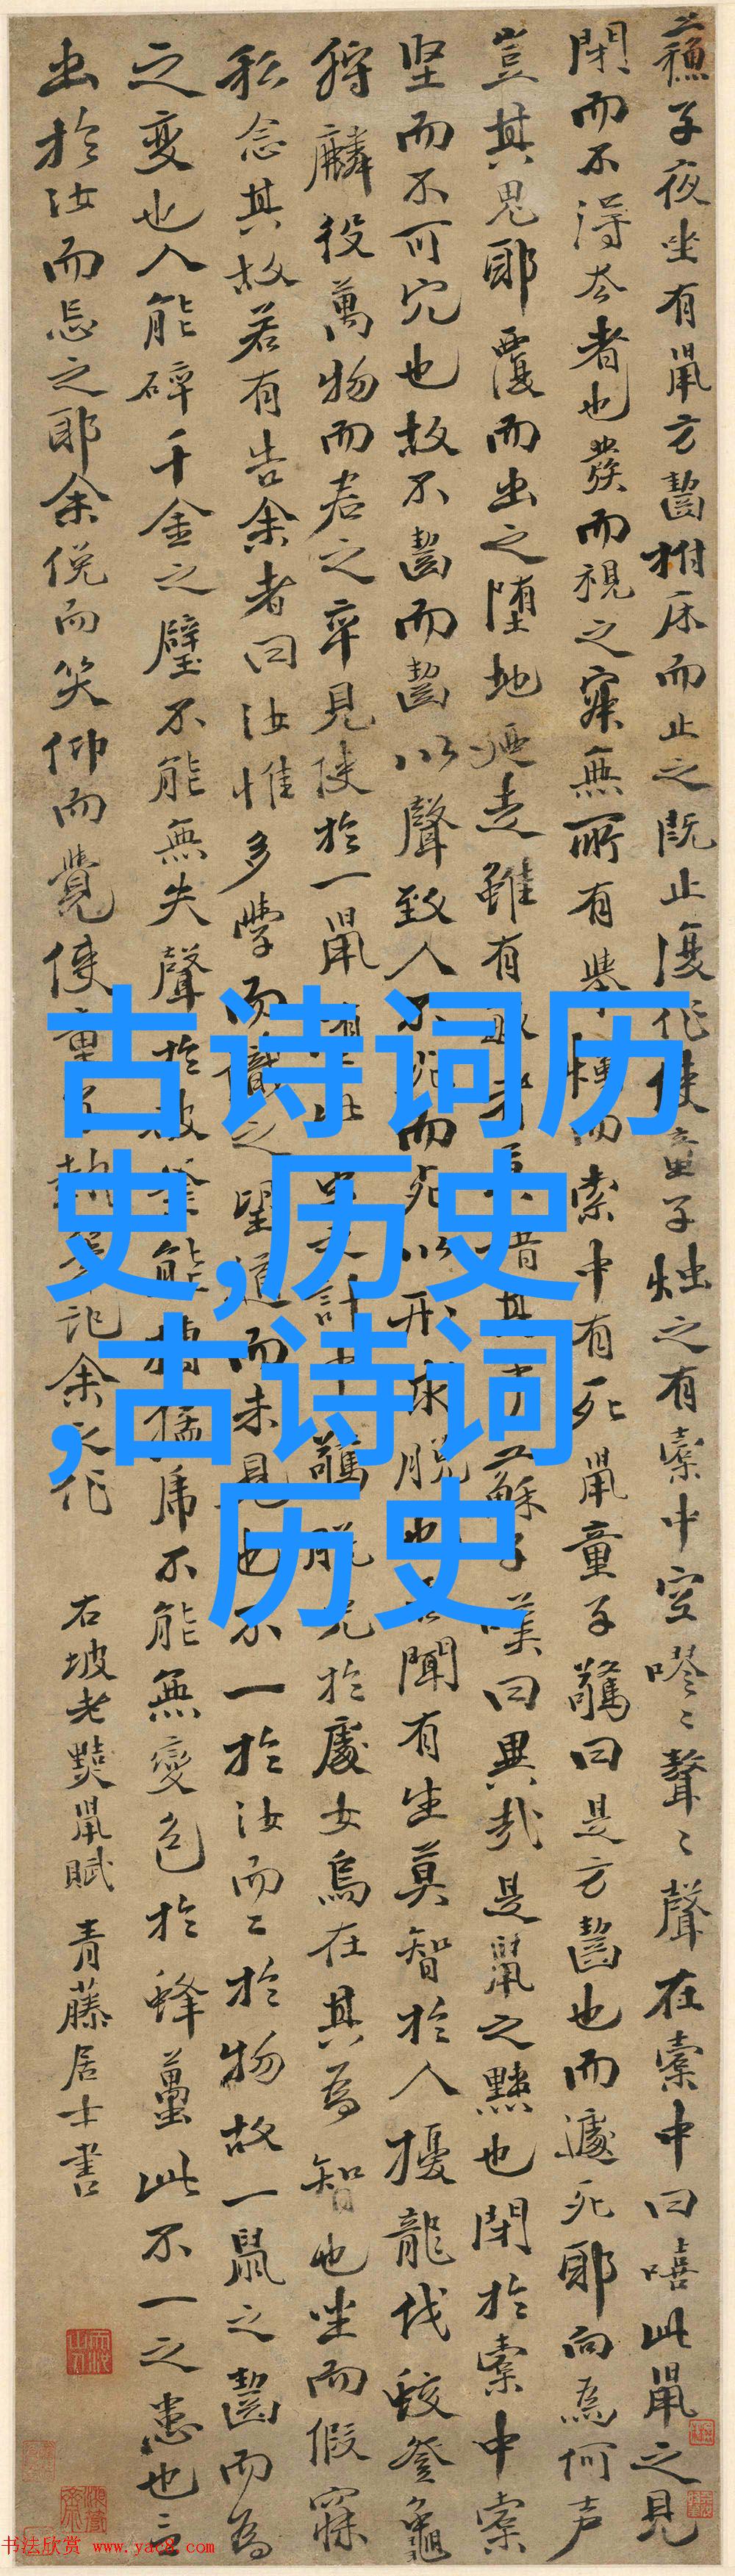 蘇子夜坐有鼠方齧拊床而止之既止復作使童子燭之有橐中空嘐〻聱〻聲在橐中曰嘻此鼠之見
閉而不得去者也發而視之寂無所有舉燭而索中有死鼠童子驚曰是方齧也而遽死耶向為何声
豈其鬼耶覆而出之墮地迺走雖有敏者莫措其手蘇子嘆曰異哉是鼠之黠也閉於橐中橐
坚而不可穴也故不齧而齧以聲致人不死而死以形求脱也吾聞有生莫智於人擾龍伐蛟登龜
狩麟役萬物而君之卒見使於一鼠計中驚脱兔於處女烏在其為智也坐而假寐
私念其故若有告余者曰汝惟多學而識之望道而未見也不一於汝而二於物故一鼠之齧而為
之變也人能碎千金之璧不能無失聲於破釜能搏猛虎不能無變色於蜂蠆此不一之患也言
出於汝而忘之耶余俛而笑仰而覺使童子執筆記余之作
右坡老黠鼠賦 青藤居士書
古诗词历
史,历史
,古诗词
历史
书法欣赏 www.yac8.com